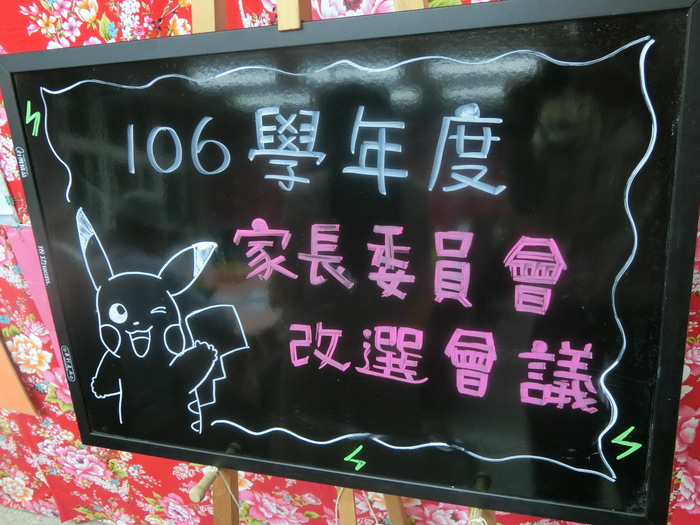 106 學年度
家長委員會
改選會議